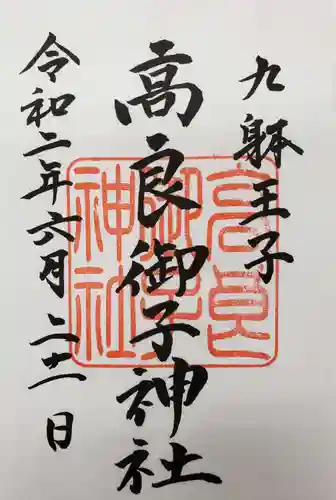 九躰王子
高良御子神社
令和二年六月二十一日
高良御子神社